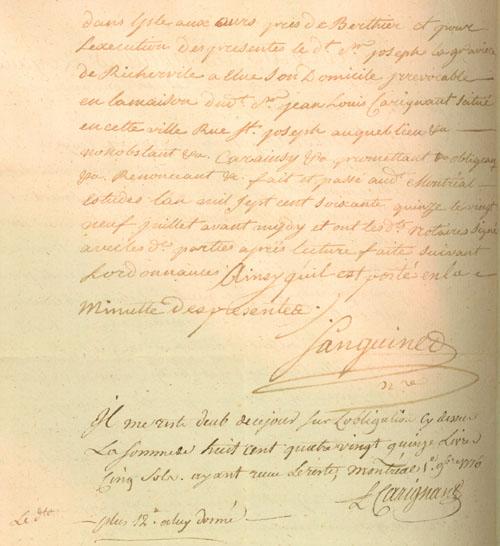 dans Isle aux ours près de Berthier et pour
Lexecution des presentes le dt. Sr. joseph la graviere
de Richervile a Elue Son Domicile jrrevocable
en la maison du Sr. jean Louis Carignant Scitué
en cette ville Rue St. joseph auquel lieu &a
nonobstant &a. Carainsy &a promettant &a obligeant
&a. Renonceant &a fait et passé audt. Montréal
Estudes Lan mil sept cent soixante quinze le vingt
neuf juillet avant midy et ont les ds. Notaires Signé
avec les ds. parties après lecture faite Suivant
Lordonnances Ainsy quil est porté en la
Minutte des presentes.
Sanguinet
nre
Il me reste deub de ce jour sur Lobligation Cy dessus
La somme de huit cent quatre vingt quinze Livre
Cinq Sols. ayant recue Le reste, montréal 1r. 9bre 1776
L Carignant
Le dt. plus 12# a luy donné